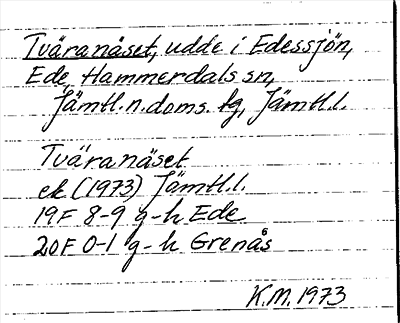 Tväranäset, udde i Edessjön,
Ede, Hammerdals sn,
Jämtl. n. doms. tg, Jämtl. l.
Tväranäset
ek (1973) Jämtl. l.
19F 8-9 g-h Ede
20F 0-1 g-h Grenås
K.M. 1973